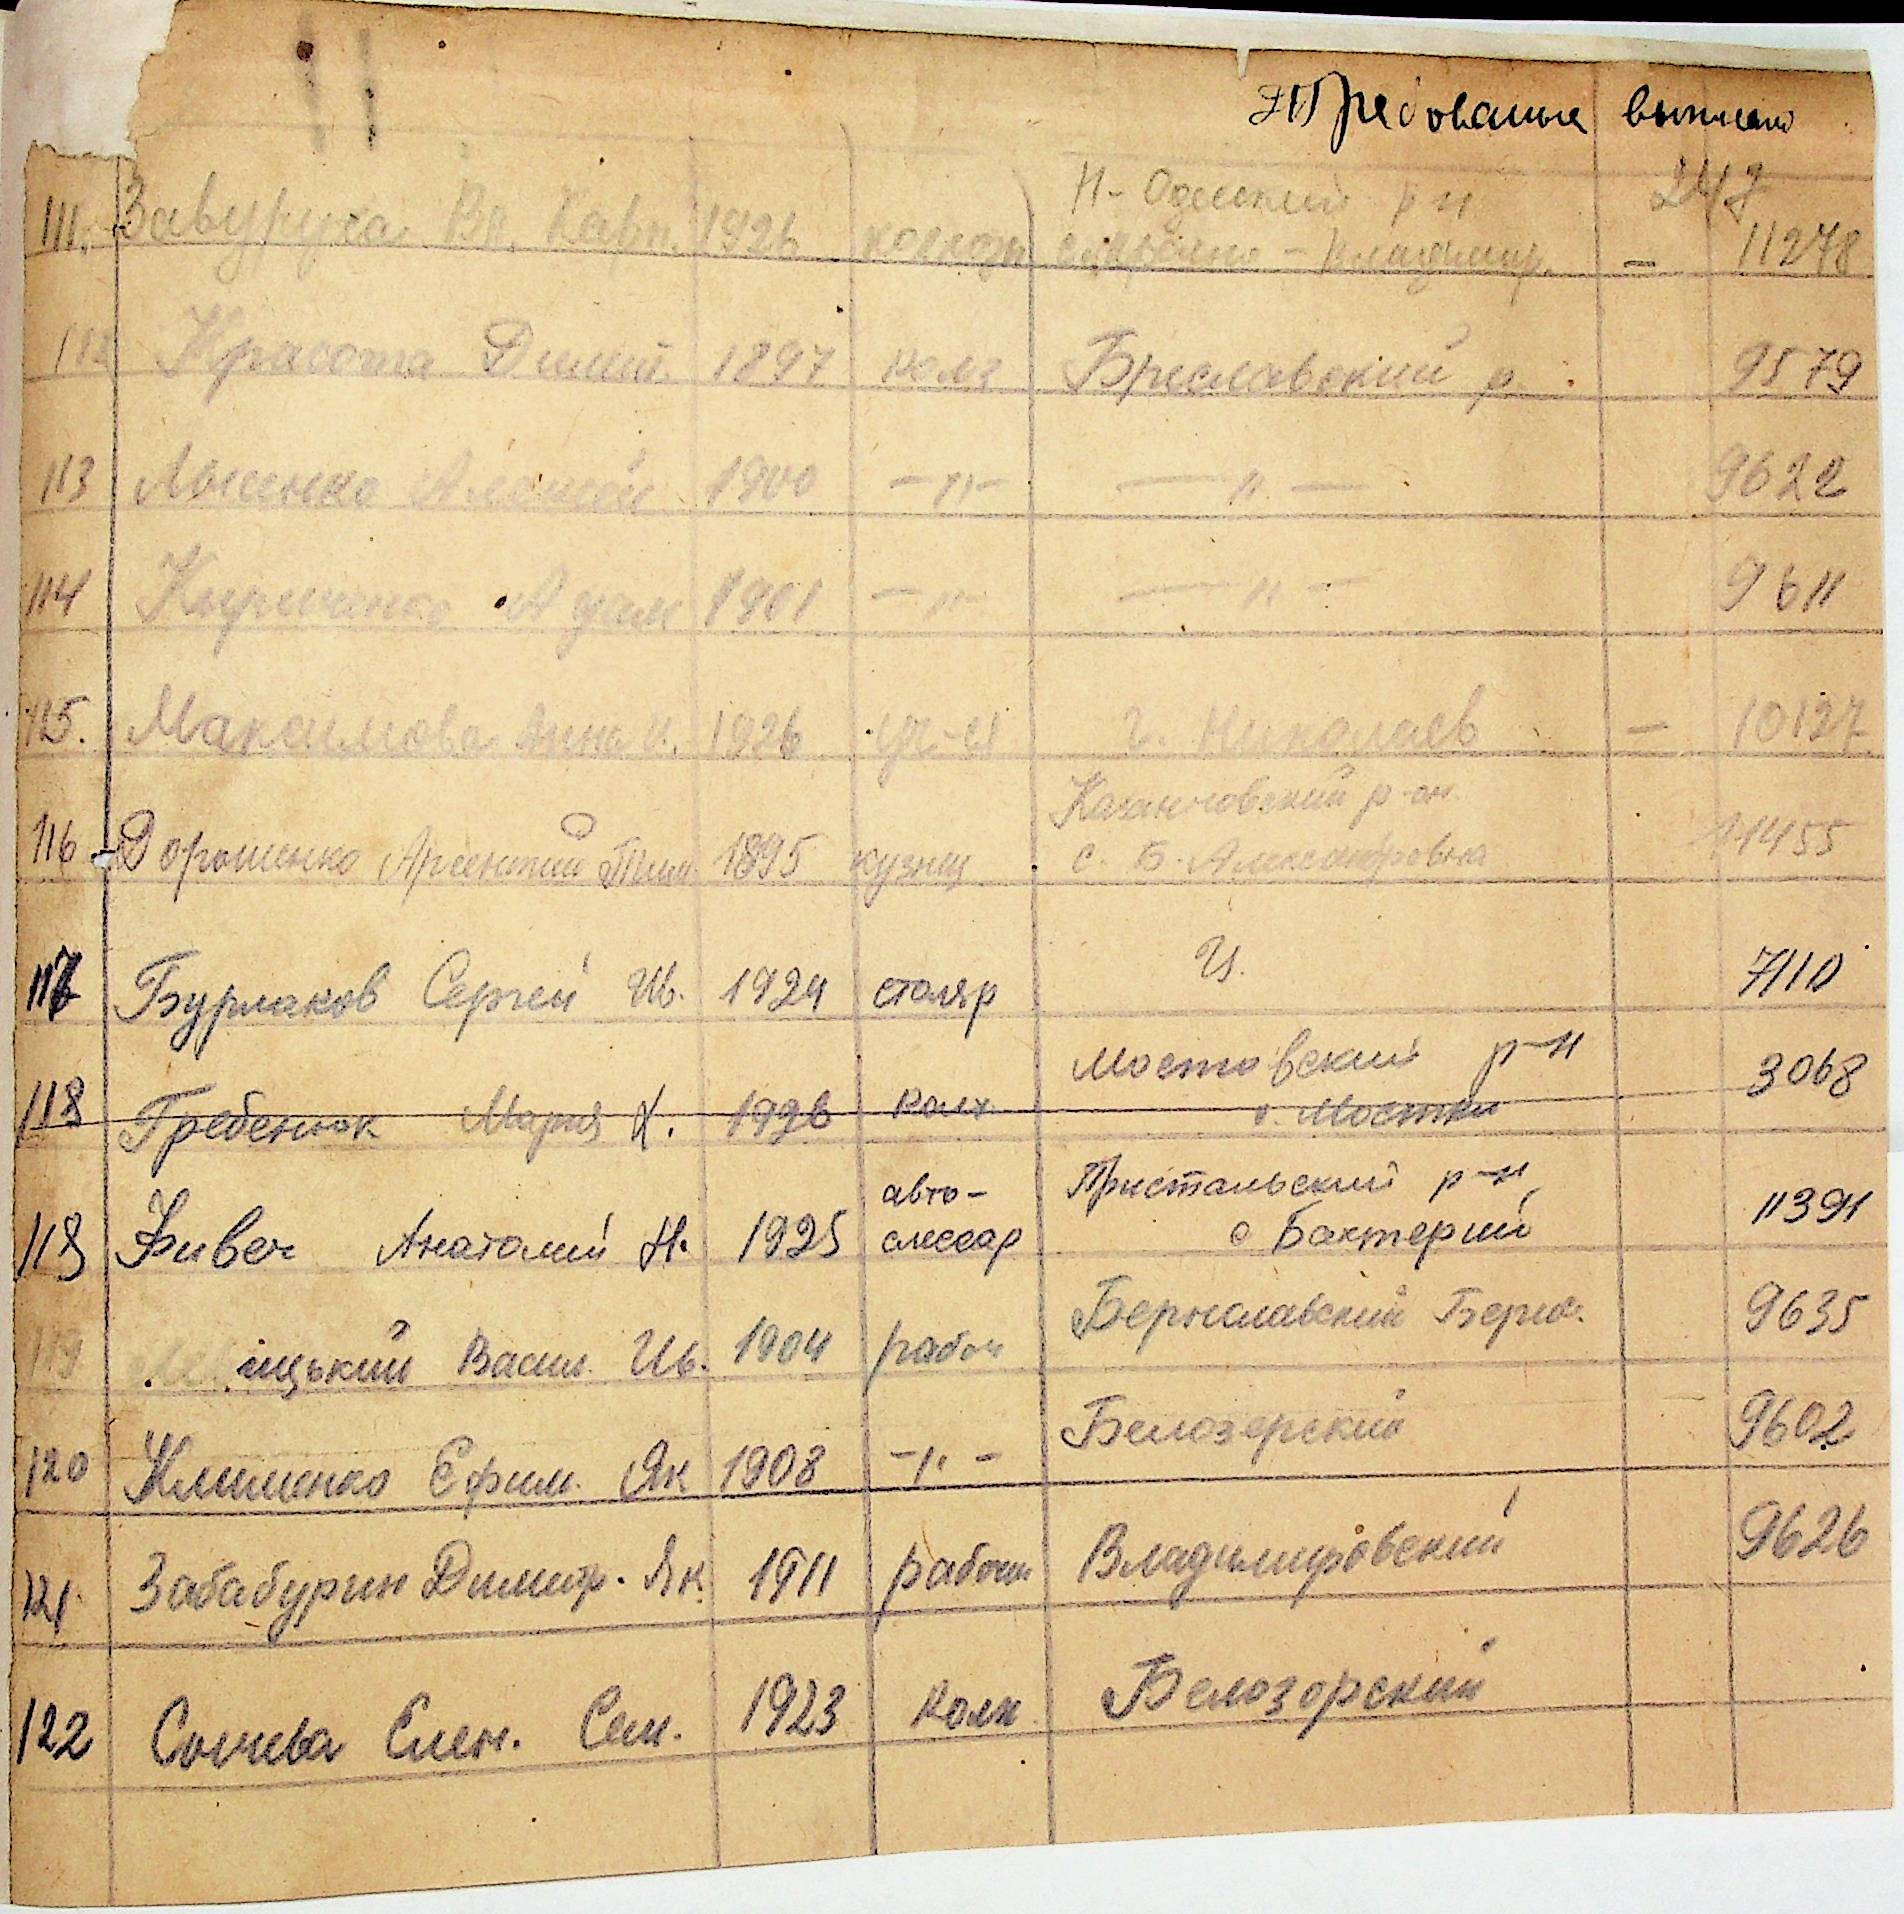 Требование выписано
Н-Одесский р н 247
111. Завуруха Вл. Карп. 1926 - Владимир. - 11278
112 Красота Димит. 1897 колх Бреславский р. 9579
113 Лысенко Алексей 1900 -"- -"- 9622
114 Кириченко Адам 1901 -"- -"- 9611
115. Максимова Анна И. 1926 уч-я г. Николаев - 10127
Казанковский р-он
116 Дорошенко Арсентий Тим. 1895 кузнец с. Б. Александровка 11455
117 Бурлаков Сергей Ив. 1924 столяр 7110
Мостовский р-н
118 Гребенюк Мария Х. 1926 колх. с. Мостки 3068
авто- р-н
118 Анатолий Н. 1925 слесар 11391
119 іщький Васил. Ив. 1904 рабоч Бериславский Берис. 9635
120 Клименко Ефим. Як 1908 -"- Белозерский 9602
121. Забабурин Димитр. Як. 1911 рабочи Владимировский 9626
122 Елен. Сем. 1923 колх Белозорский